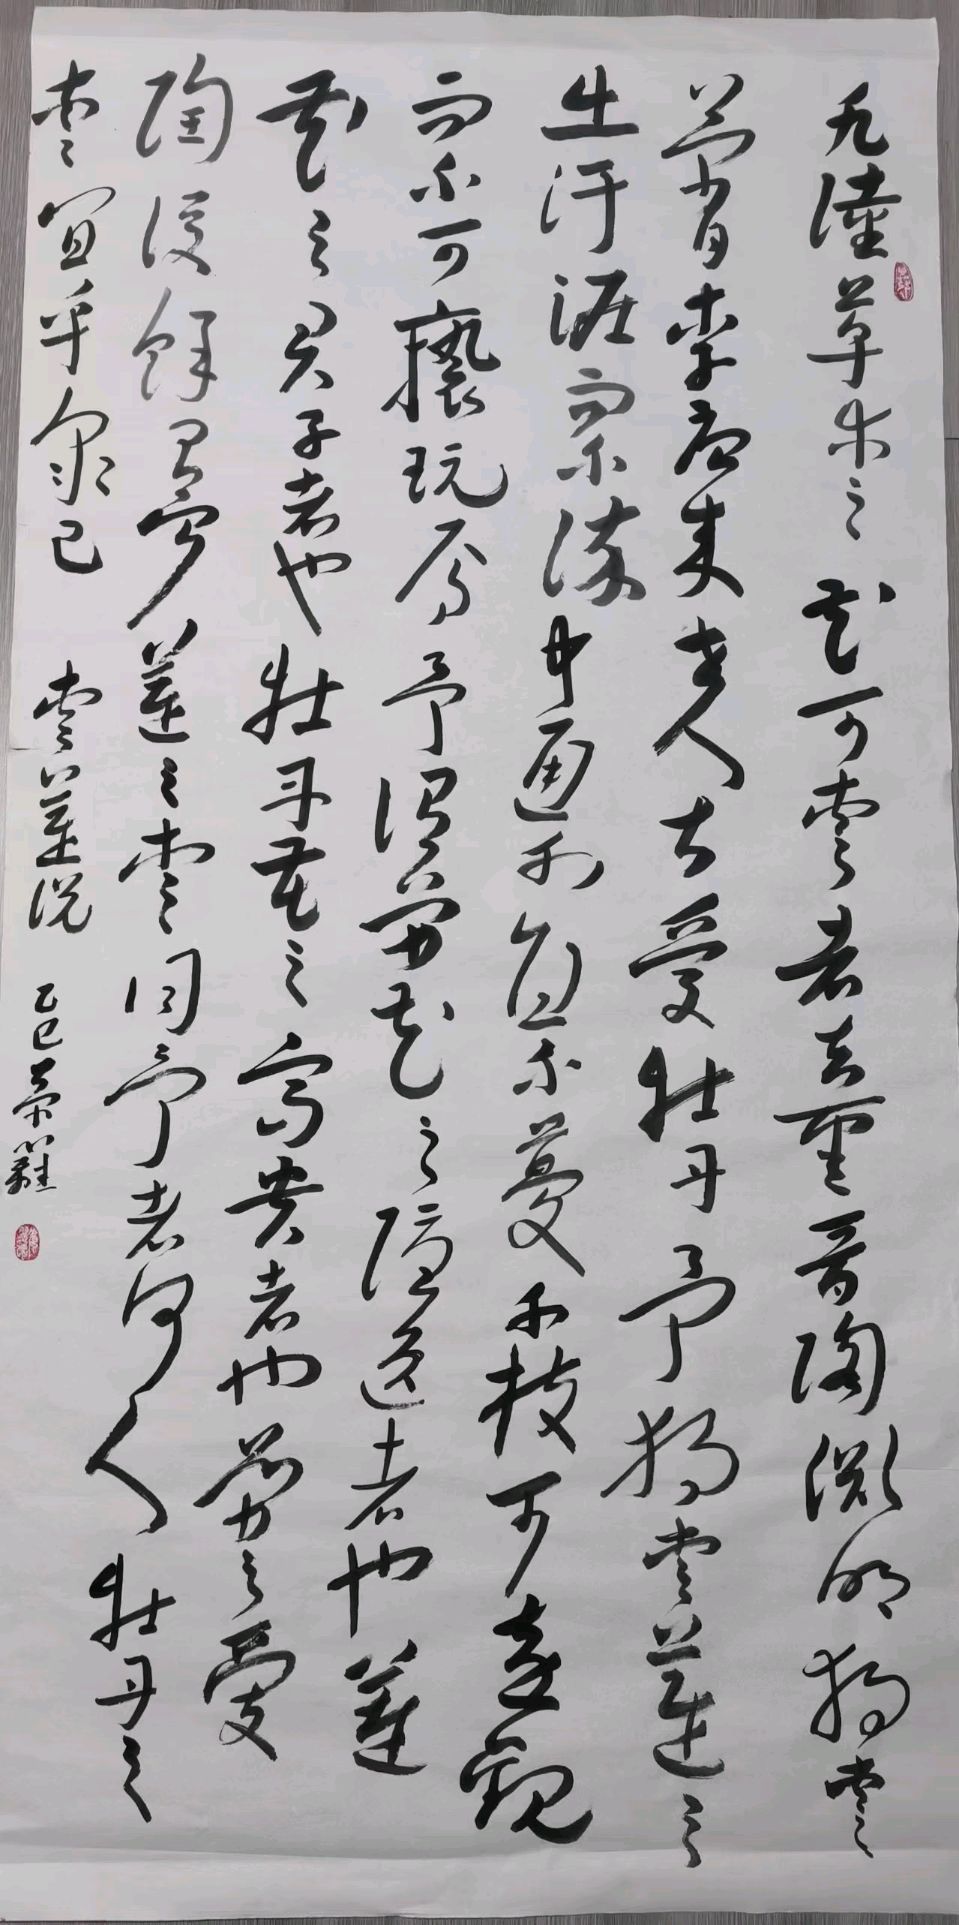 水陸草木之花可愛者甚蕃晉陶淵明獨愛
菊自李唐来世人甚愛牡丹予獨愛蓮之
出汙泥而不染中通外直不蔓不枝可遠觀
而不可褻玩焉予謂菊花之隱逸者也蓮
花之君子者也牡丹花之富貴者也菊之愛
陶後鮮有聞蓮之愛同予者何人牡丹之
愛宜乎衆已 愛蓮説 乙巳